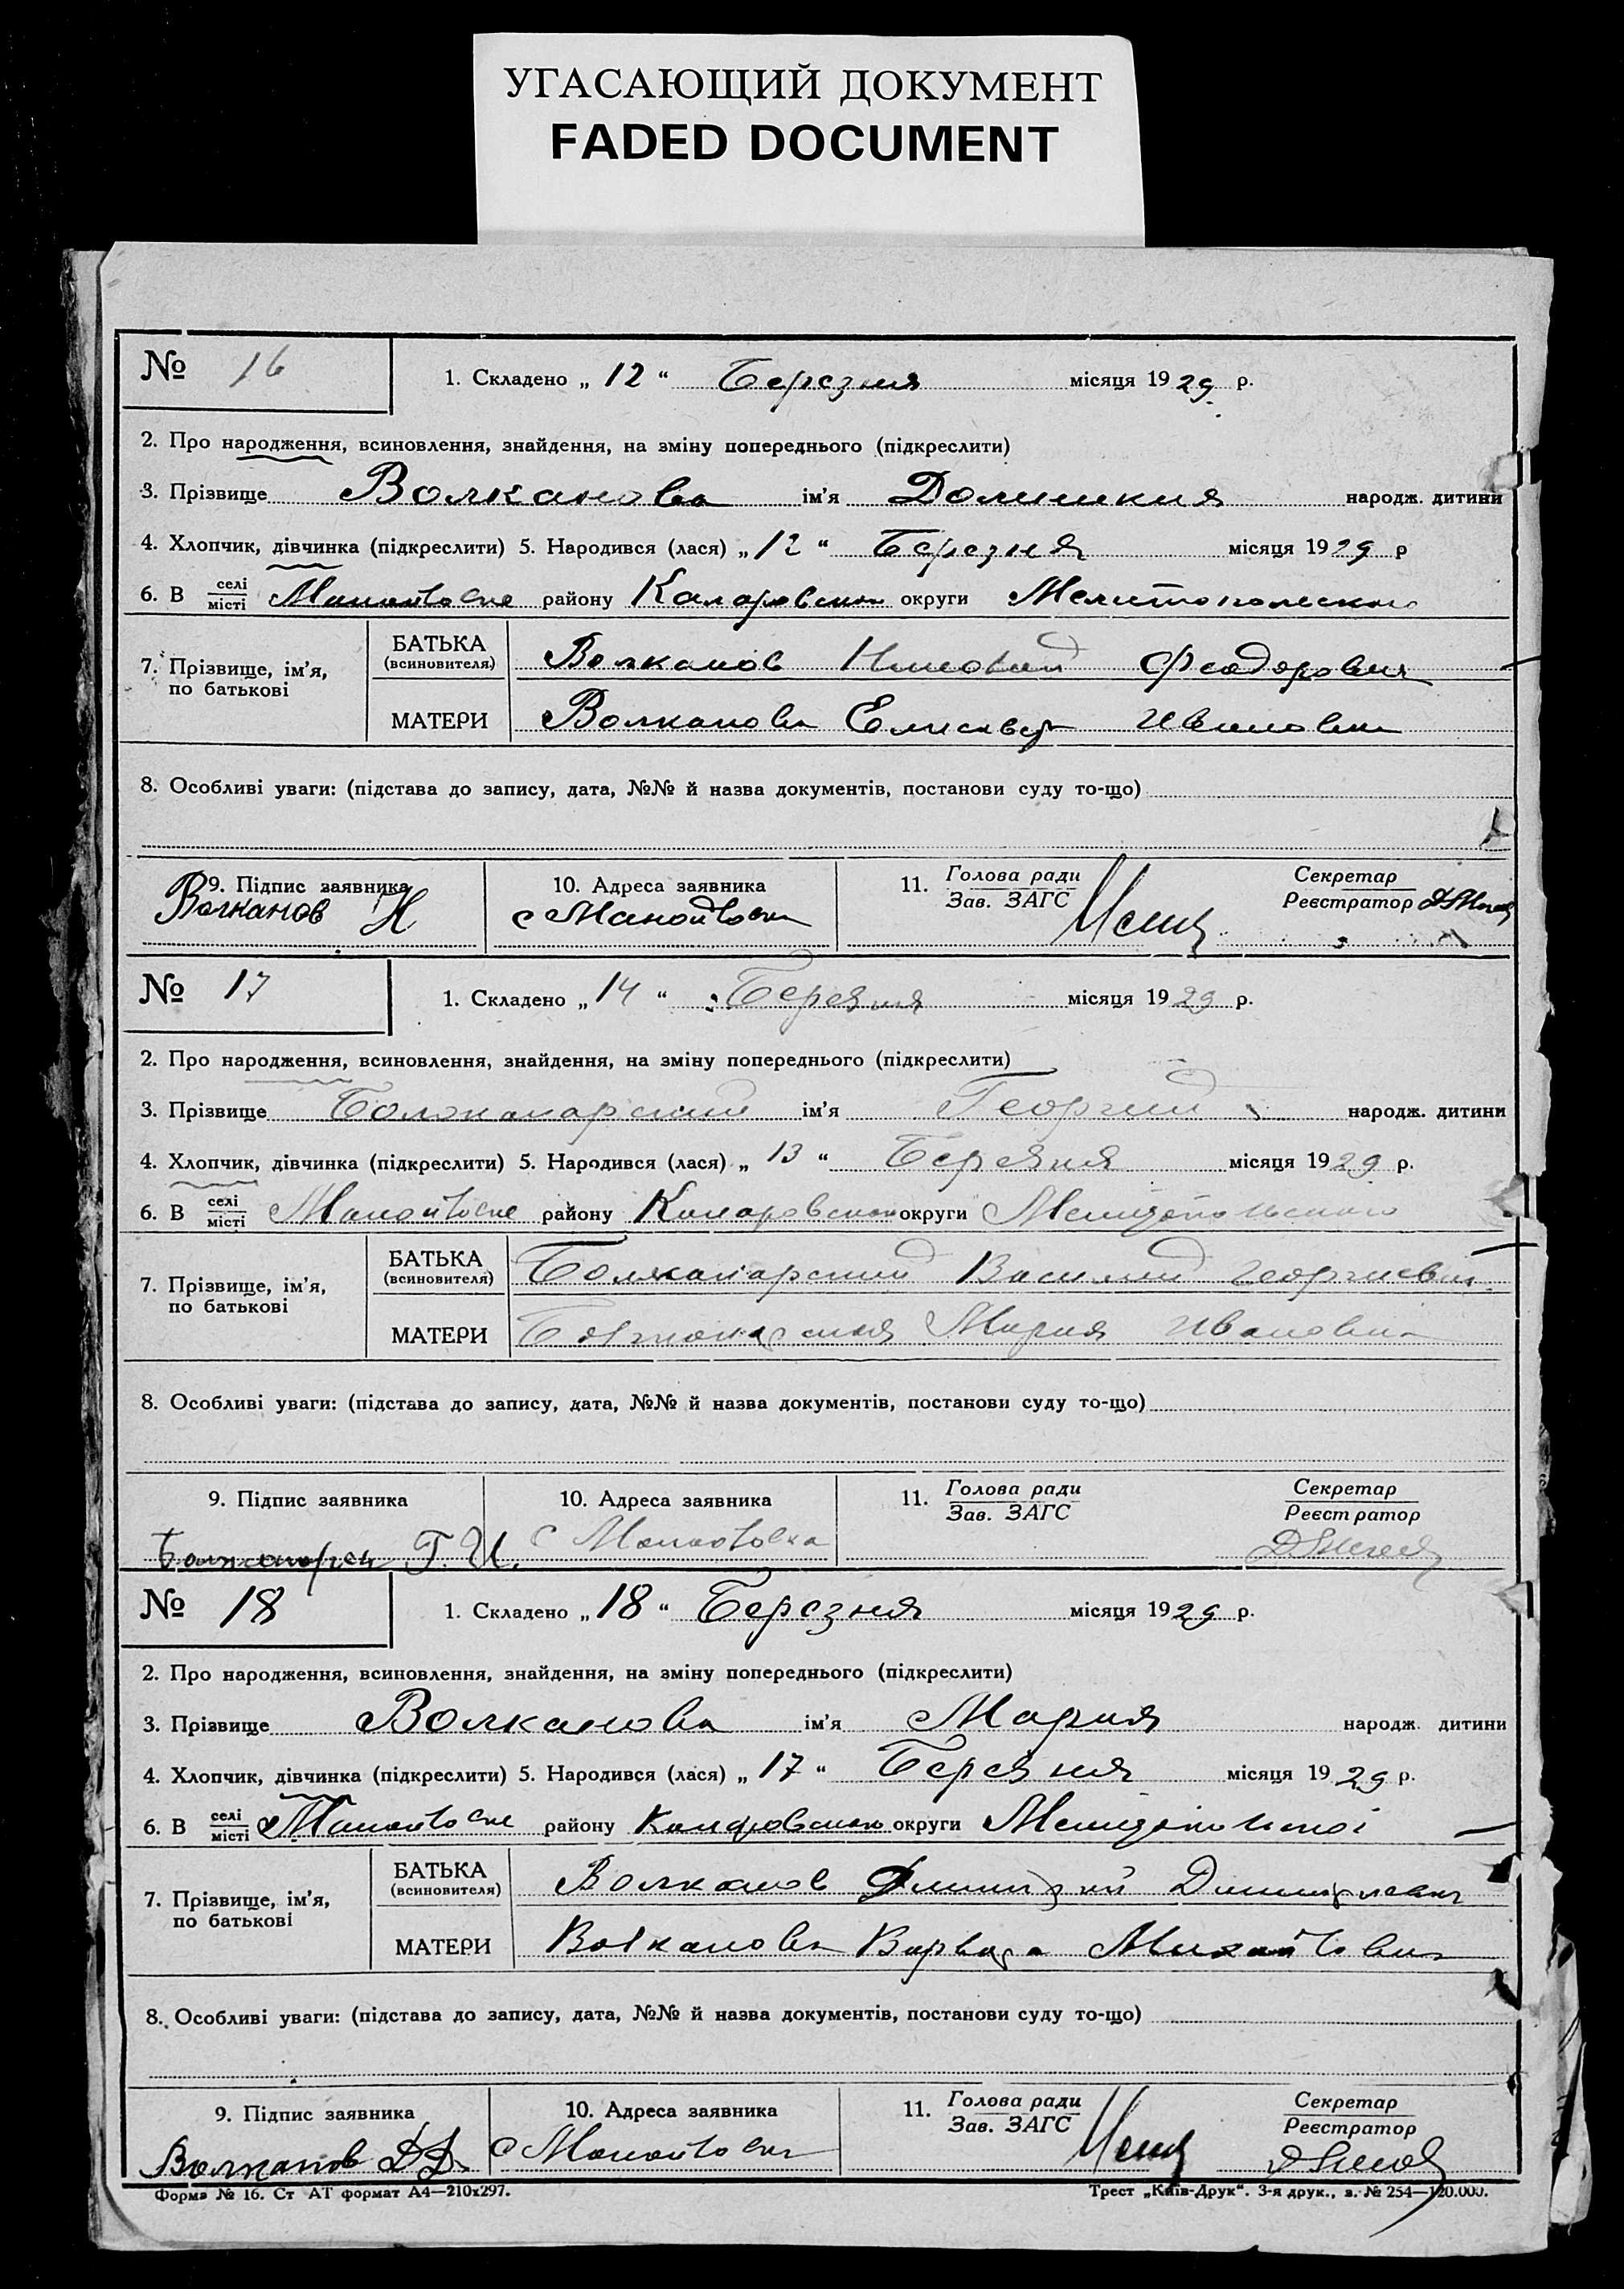 УГАСАЮЩИЙ ДОКУМЕНТ
FADED DOCUMENT
№ 16
1. Складено „ 12 “ Березня місяця 1929 р.
2. Про народження, всиновлення, знайдення, на зміну попереднього (підкреслити)
3. Прізвище Волканова ім'я Домникия народж. дитини
4. Хлопчик, дівчинка (підкреслити) 5. Народився (лася) „ 12 “ Березня місяця 1929 р
6. В селі місті району округи
7. Прізвище, ім'я, по батькові
БАТЬКА (всиновителя) Волканов Феодорович
МАТЕРИ Волканова Елисавета Ивановна
8. Особливі уваги: (підстава до запису, дата, №№ й назва документів, постанови суду то-що)
9. Підпис заявника 10. Адреса заявника 11. Голова ради Зав. ЗАГС Секретар Реєстратор
Волканов Н с
№ 17
1. Складено „ 14 “ Березня місяця 1929 р.
2. Про народження, всиновлення, знайдення, на зміну попереднього (підкреслити)
3. Прізвище ім'я Георгий народж. дитини
4. Хлопчик, дівчинка (підкреслити) 5. Народився (лася) „ 13 “ Березня місяця 1929 р.
6. В селі місті району округи
7. Прізвище, ім'я, по батькові
БАТЬКА (всиновителя) Василий Георгиевич
МАТЕРИ Мария Ивановна
8. Особливі уваги: (підстава до запису, дата, №№ й назва документів, постанови суду то-що)
9. Підпис заявника 10. Адреса заявника 11. Голова ради Зав. ЗАГС Секретар Реєстратор
Г. И. с
№ 18
1. Складено „ 18 “ Березня місяця 1929 р.
2. Про народження, всиновлення, знайдення, на зміну попереднього (підкреслити)
3. Прізвище Волканова ім'я Мария народж. дитини
4. Хлопчик, дівчинка (підкреслити) 5. Народився (лася) „ 17 “ Березня місяця 1929 р.
6. В селі місті району округи
7. Прізвище, ім'я, по батькові
БАТЬКА (всиновителя) Волканов Димитрий Димитриевич
МАТЕРИ Волканова Варвара Михайловна
8. Особливі уваги: (підстава до запису, дата, №№ й назва документів, постанови суду то-що)
9. Підпис заявника 10. Адреса заявника 11. Голова ради Зав. ЗАГС Секретар Реєстратор
Волканов Д Д с
Форма № 16. Ст АТ формат А4—210х297. Трест „Київ-Друк“. 3-я друк., з. № 254—120.000.